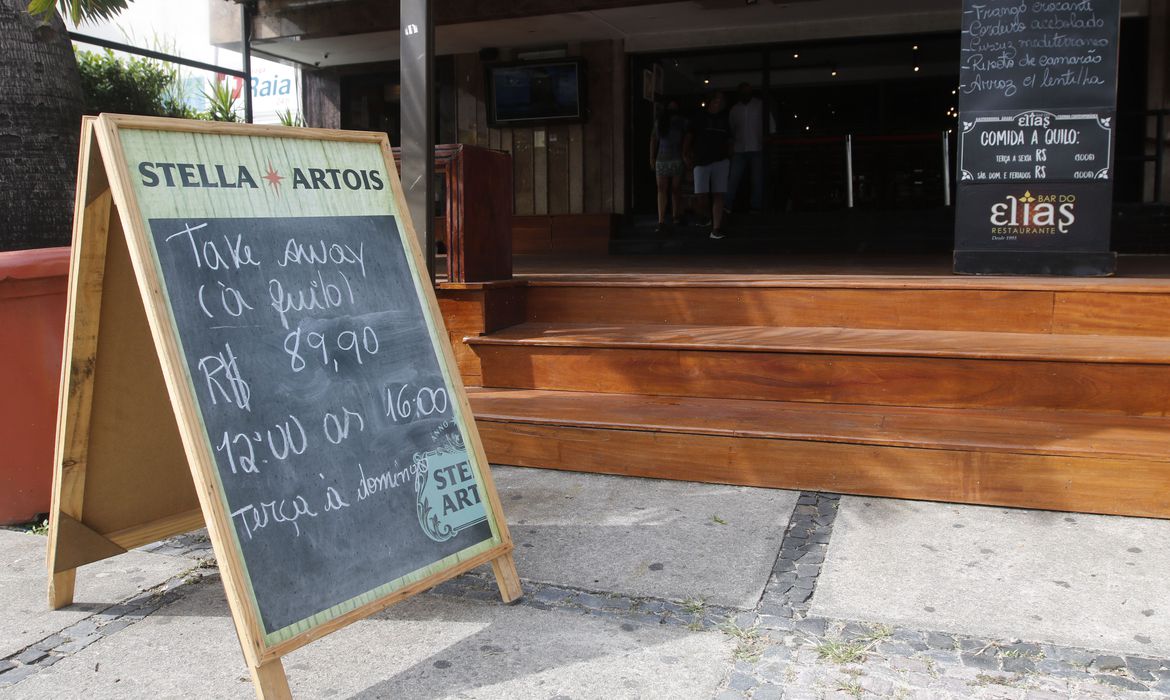 STELLA ARTOIS
Take away
(à quilo)
R$ 89,90
12:00 as 16:00
Terça à domingo
ANNO
STE
ART
Raia
Frango crocante
Cordeiro acebolado
Cuscuz mediterraneo
Risoto de camarão
Arroz c/ lentilha
Elias
COMIDA A QUILO:
TERÇA A SEXTA R$ 100G
SÁB. DOM. E FERIADOS R$ 100G
BAR DO
Elias
RESTAURANTE
Desde 1993